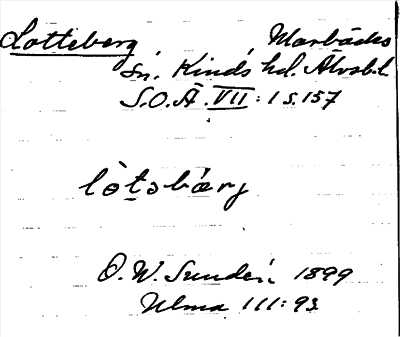 Lotteberg Marbäcks
sn. Kinds hd. Älvsb.l.
S.O.Ä. VII: 1 s. 157
lòtsbærg
O. W. Sundén 1899
Ulma 111:93